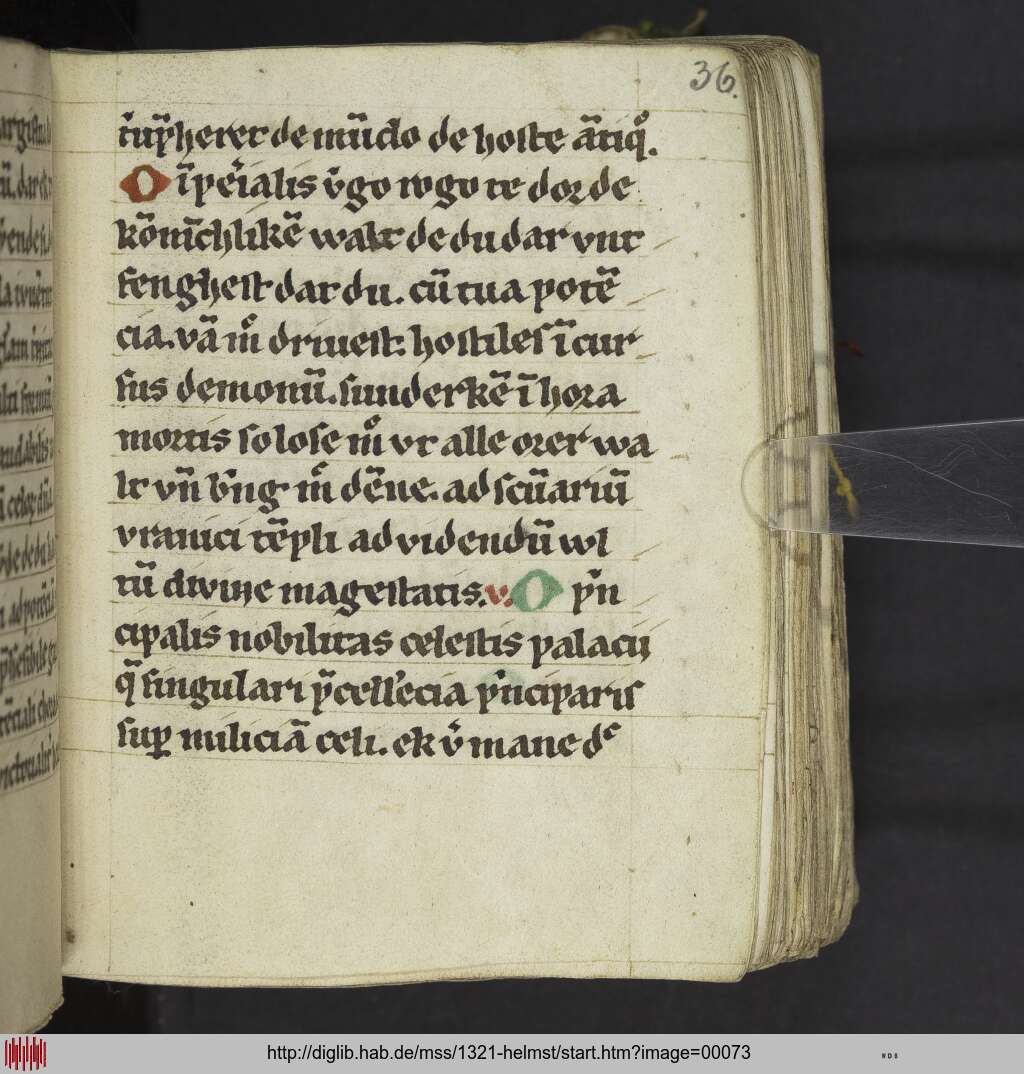 36.
t̃up̃heret de mũdo de hoste ãtiqͦ.
O ĩpẽialis v̉go rogo te dor de
kõnĩchlikẽ walt de du dar vnt
fenghest dar du. cũ tua potẽ
cia. vã mͦ driuest. hostiles ĩcur
sus demonũ. sunderkẽ ĩ hora
mortis so lose mͦ vt alle orer wa
lt vñ bͥng mͦ dẽne. ad scũariũ
vranici tẽpli ad videndũ wl
tũ diuine magestatis. v. O pͥn
cipalis nobilitas celestis palacij
q̃ singulari p̃cellẽcia pͥnciparis
suꝑ miliciã celi. ek v̉mane dͤ
http://diglib.hab.de/mss/1321-helmst/start.htm?image=00073